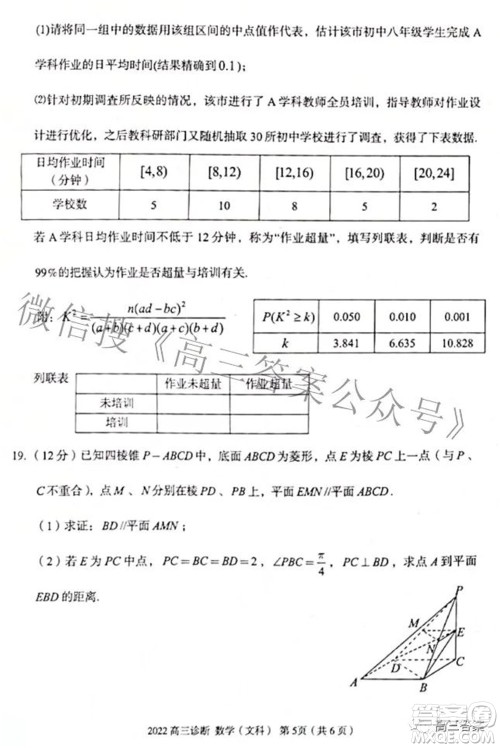 (1)请将同一组中的数据用该组区间的中点值作代表，估计该市初中八年级学生完成 A
学科作业的日平均时间(结果精确到 0.1)；
(2)针对初期调查所反映的情况，该市进行了 A 学科教师全员培训，指导教师对作业设
计进行优化，之后教科研部门又随机抽取 30 所初中学校进行了调查，获得了下表数据.
日均作业时间（分钟） [4,8) [8,12) [12,16) [16,20) [20,24]
学校数 5 10 8 5 2
若 A 学科日均作业时间不低于 12 分钟，称为“作业超量”，填写列联表，判断是否有
99%的把握认为作业是否超量与培训有关.
附：K²=n(ad−bc)²/((a+b)(c+d)(a+c)(b+d))
P(K²≥k) 0.050 0.010 0.001
k 3.841 6.635 10.828
列联表
作业未超量 作业超量
未培训
培训
19.（12 分）已知四棱锥 P−ABCD 中，底面 ABCD 为菱形，点 E 为棱 PC 上一点（与 P、
C 不重合），点 M 、 N 分别在棱 PD 、 PB 上，平面 EMN // 平面 ABCD .
（1）求证：BD // 平面 AMN ；
（2）若 E 为 PC 中点，PC = BC = BD = 2 ，∠PBC = π/4 ，PC ⊥ BD ，求点 A 到平面
EBD 的距离.
P
M
E
N
D
C
A
B
2022 高三诊断 数学（文科） 第 5页（共 6 页）
微信搜《高三答案公众号》
高三答案